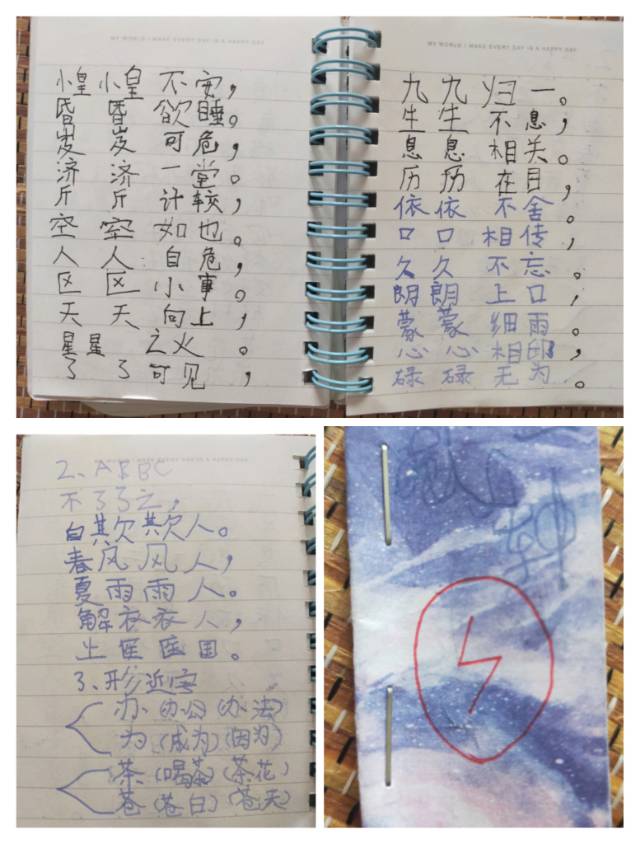 MY WORLD / MAKE EVERY DAY IS A HAPPY DAY
惶惶不安，
昏昏欲睡。
岌岌可危，
济济一堂。
斤斤计较，
空空如也。
人人自危，
区区小事。
天天向上，
星星之火。
了了可见，
MY WORLD / MAKE EVERY DAY IS A HAPPY DAY
九九归一。
生生不息，
息息相关。
历历在目，
依依不舍。
口口相传，
久久不忘。
朗朗上口，
蒙蒙细雨。
心心相印，
碌碌无为。
2、ABBC
不了了之，
自欺欺人。
春风风人，
夏雨雨人。
解衣衣人，
上医医国。
3、形近字
办（办公）（办法）
为（成为）（因为）
茶（喝茶）（茶花）
苍（苍白）（苍天）